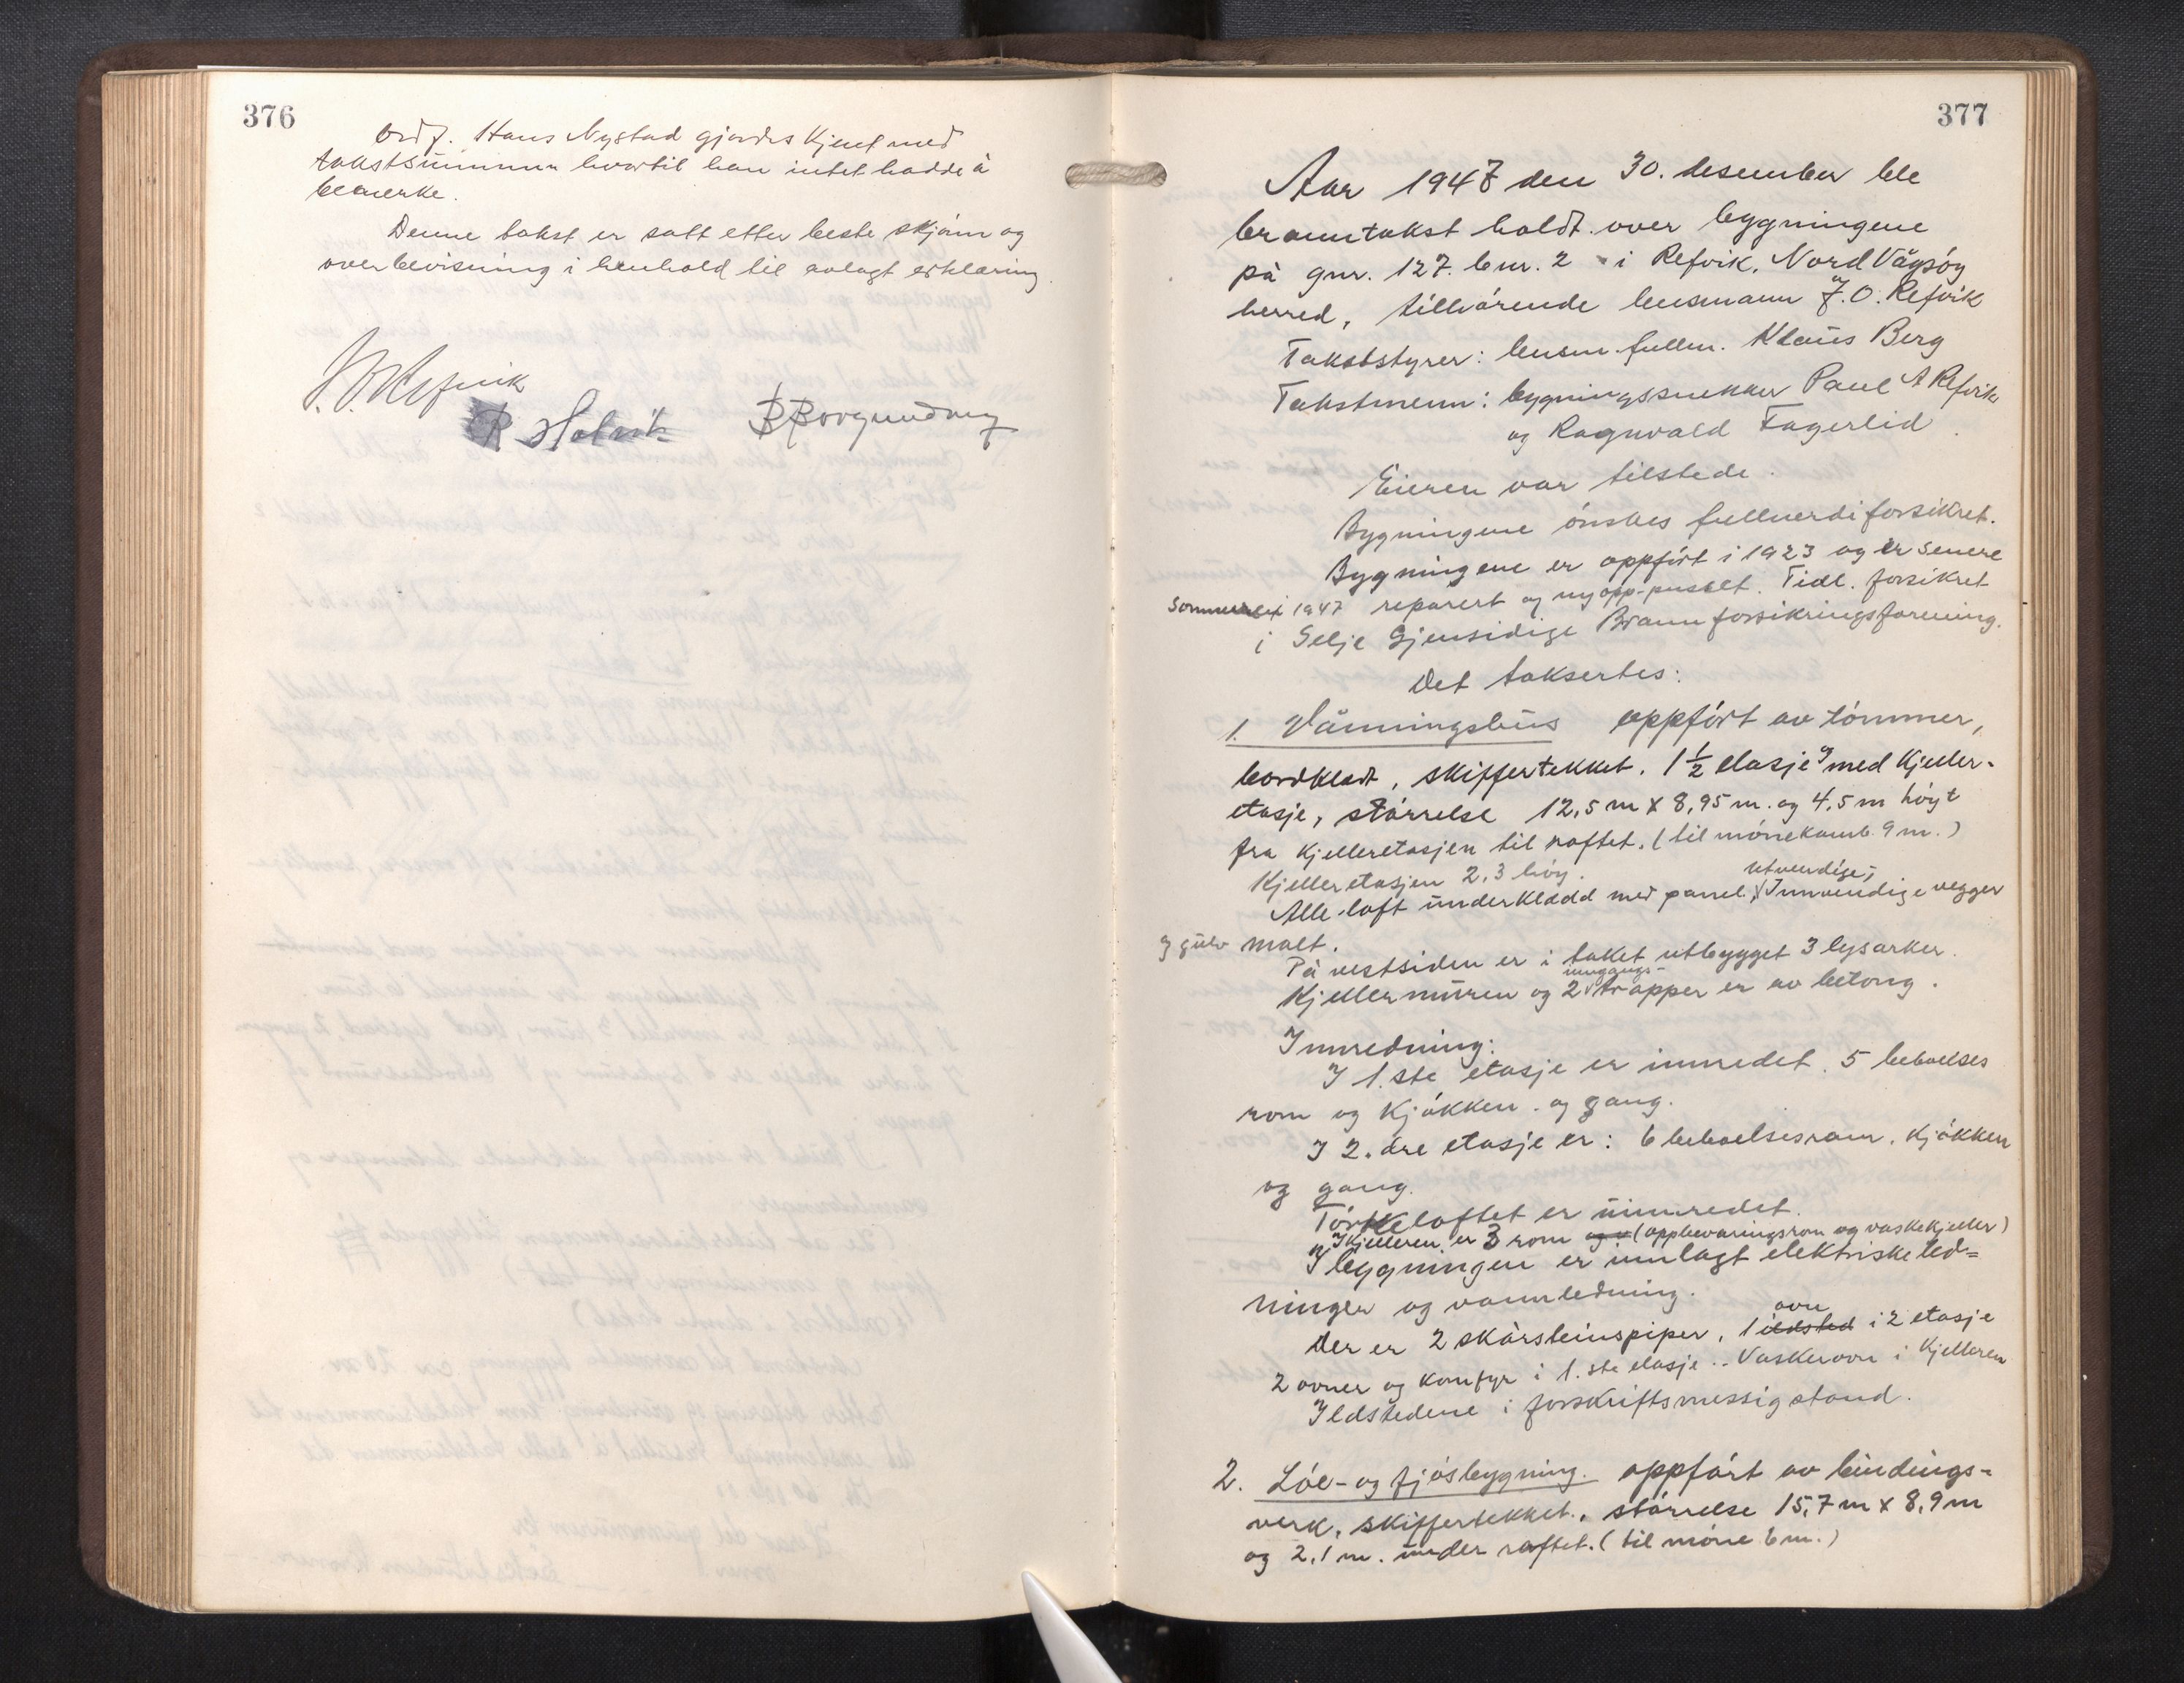 376
Ordf. Hans Nystad gjordes kjent med
takstsummen hvortil han intet hadde å
bemerke.
Denne takst er satt etter beste skjønn og
overbevisning i henhold til avlagt erklæring.
J. O. Refvik
R Halvik B Borgundvåg
377
Aar 1947 den 30. desember ble
branntakst holdt over bygningene
på gnr. 127. bnr. 2 i Refvik, Nord Vågsøy
herred, tilhørende lensmann J. O. Refvik
Takststyrer: lensm. fullm. Klaus Berg
Takstmenn: bygningssnekker Paul A Refvik
og Ragnvald Fagerlid
Eieren var tilstede.
Bygningene ønskes fullverdiforsikret.
Bygningene er oppført i 1923 og er senere
sommeren 1947 reparert og nyopp-pusset. Tidl. forsikret
i Selje Gjensidige Brannforsikringsforening.
Det taksertes:
1. Våningshus oppført av tømmer,
bordkledt, skiffertekket. 1 1/2 etasje og med kjeller-
etasje, størrelse 12,5 m x 8,95 m. og 4,5 m høgt
fra kjelleretasjen til raftet. (til mønekamb 9 m.)
Kjelleretasjen 2,3 høy.
utvendige,
Alle loft underkledd med panel. Innvendige vegger
og gulv malt.
På vestsiden er i taket utbygget 3 lysarker.
inngangs-
Kjellermuren og 2 trapper er av betong.
Innredning:
I 1.ste etasje er innredet. 5 beboelses
rom og kjøkken. og gang.
I 2.dre etasje er: 6 beboelsesrom, kjøkken
og gang.
Tørkeloftet er uinnredet.
I kjelleren er 3 rom og v (oppbevaringsrom og vaskekjeller)
I bygningen er innlagt elektriske led=
ninger og vannledning.
ovn
Der er 2 skorsteinspiper, 1 ildsted i 2 etasje
2 ovner og komfyr i 1.ste etasje.. Vaskeovn i kjelleren
Ildstedene i forskriftsmessig stand.
2. Løe- og fjøsbygning. oppført av bindings-
verk, skiffertekket., størrelse 15,7 m x 8,9 m
og 2,1 m. under raftet. (til møne 6 m.)